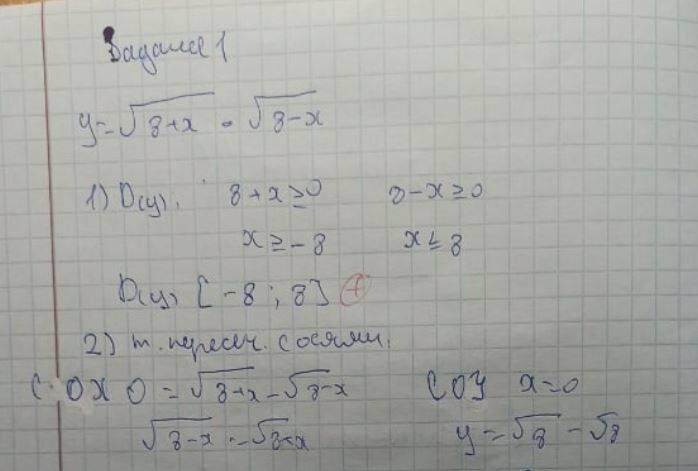 Задание 1
y = √8+x - √8-x
1) D(y): 8+x ≥ 0 8-x ≥ 0
x ≥ -8 x ≤ 8
D(y) [-8; 8] +
2) т. пересеч. с осями.
С OX 0 = √8+x - √8-x С OY x=0
√8-x = √8+x y = √8 - √8